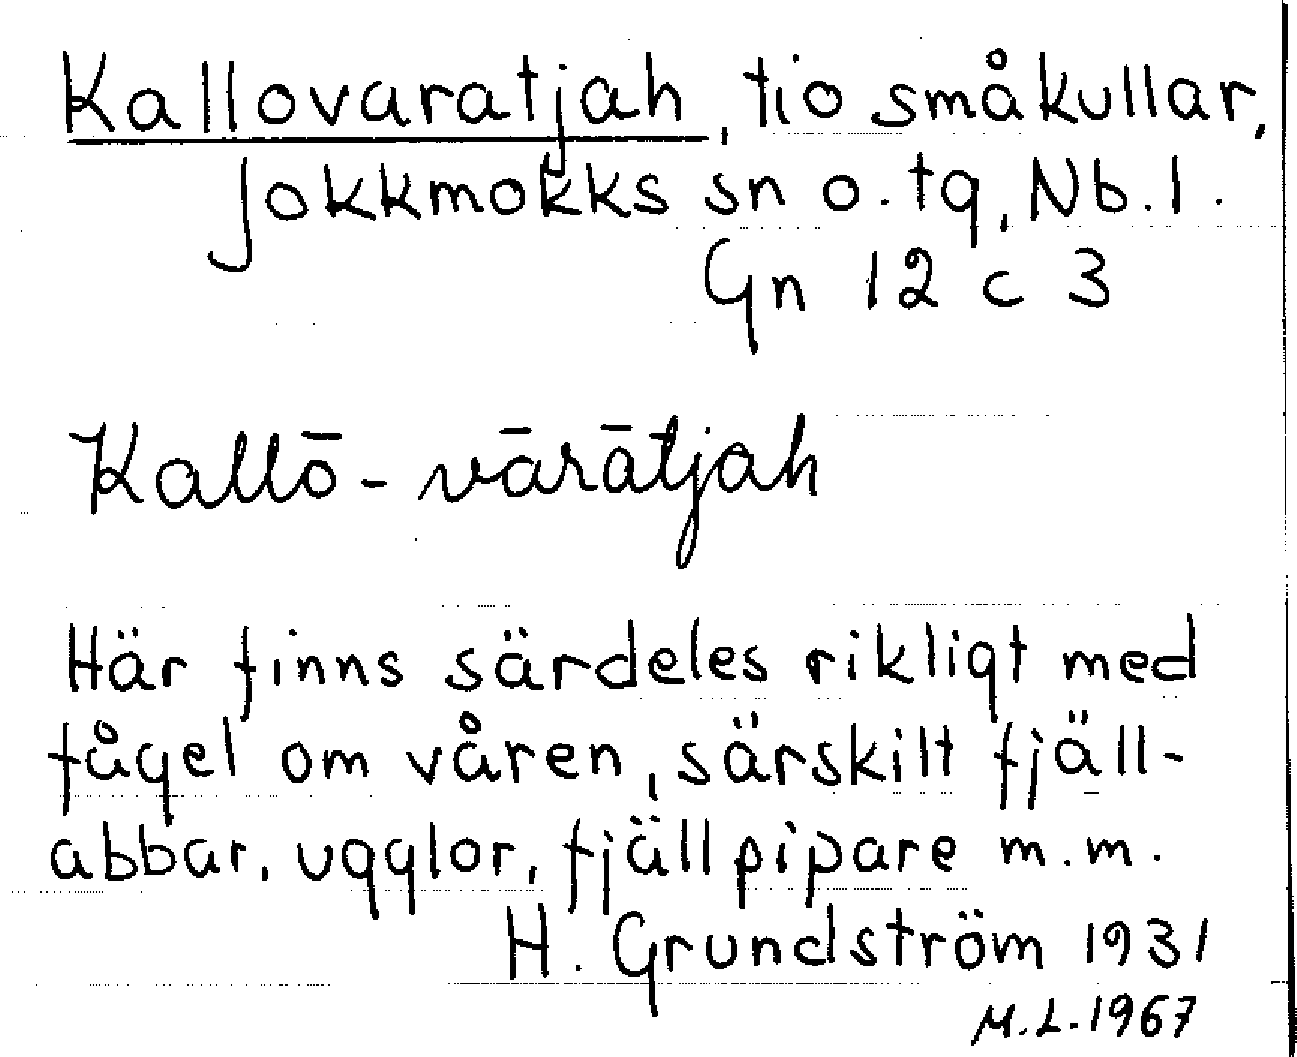 Kallovaratjah, tio småkullar,
Jokkmokks sn o. tg, Nb. l.
Gn 12 c 3
Kallō-vārātjah
Här finns särdeles rikligt med
fågel om våren, särskilt fjäll-
abbar, ugglor, fjällpipare m.m.
H. Grundström 1931
M.L. 1967